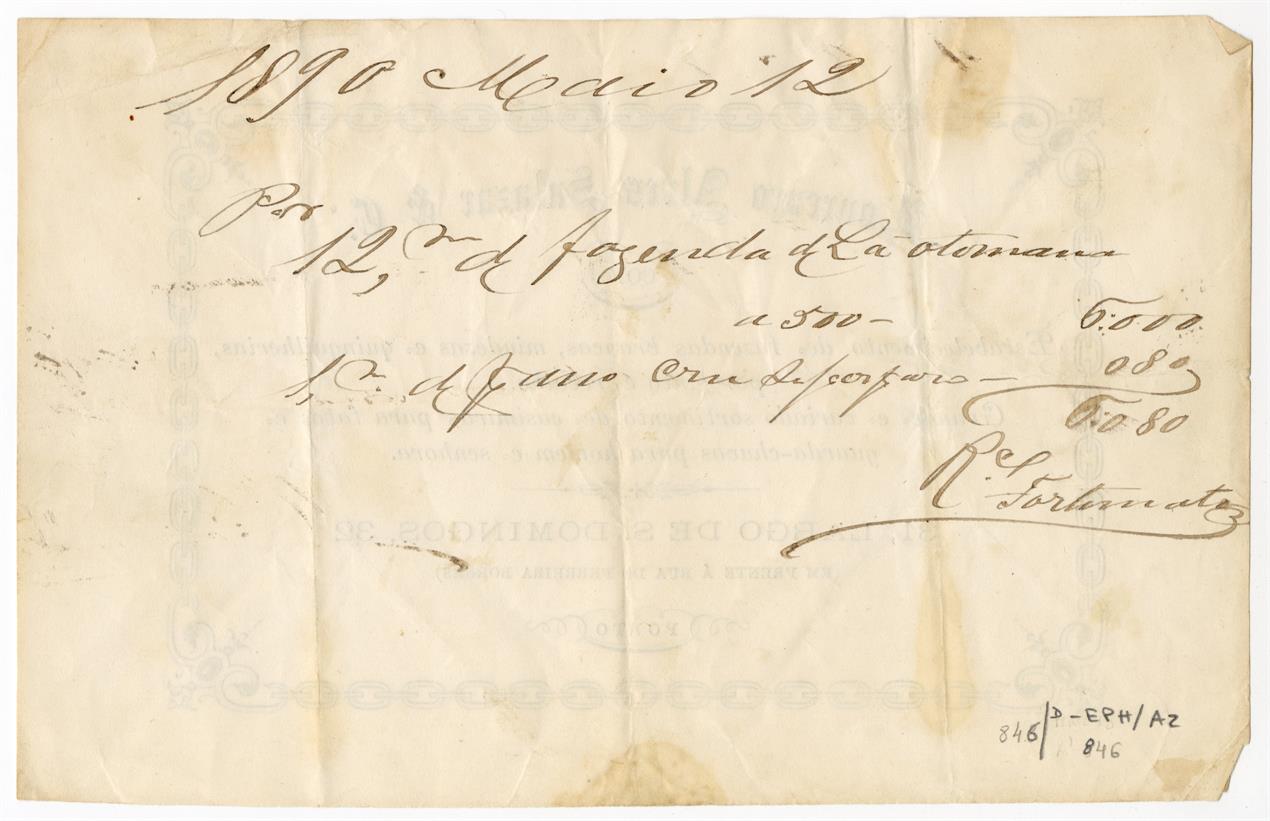 1890 Maio 12
Por
12, m d fazenda d Lã otomana
a 500 – 6:000
1, m d pano cru – 080
6:080
R.
Fortunato
846/D-EPH/A2
846